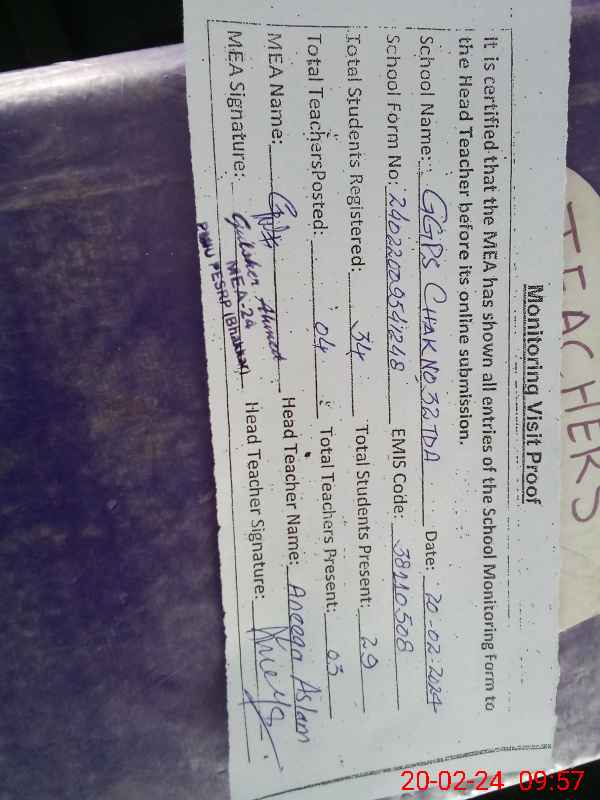 TEACHERS
Monitoring Visit Proof
It is certified that the MEA has shown all entries of the School Monitoring Form to
the Head Teacher before its online submission.
School Name: GGPS CHAK NO. 32 TDA Date: 20-02-2024
School Form No: 2402200954248 EMIS Code: 38110508
Total Students Registered: 34 Total Students Present: 29
Total Teachers Posted: 04 Total Teachers Present: 03
MEA Name: Head Teacher Name: Aneeqa Aslam
MEA Signature: Gulsher Ahmed Head Teacher Signature:
MEA-24
PMIU PESRP (Bhakkar)
20-02-24 09:57